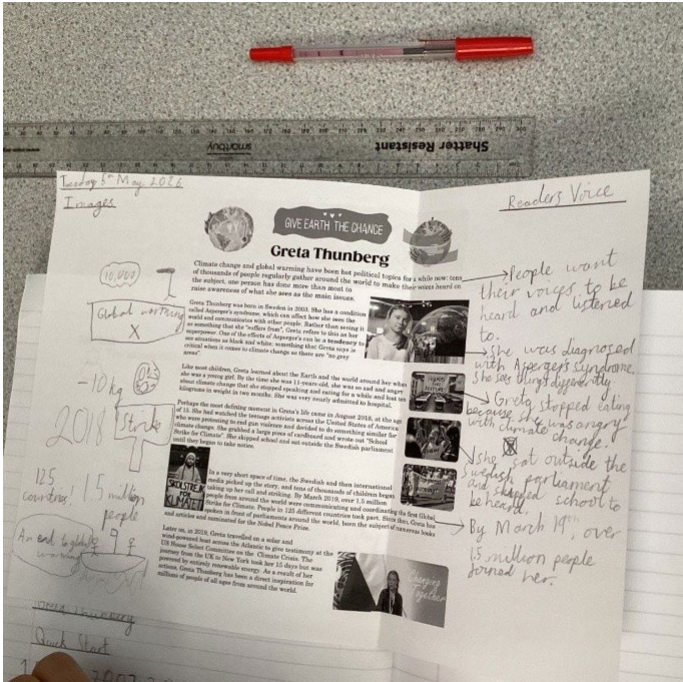 Shatter Resistant
smartbuy
Tuesday 5th May 2026
Images
Readers Voice
GIVE EARTH THE CHANCE
Greta Thunberg
Climate change and global warming have been hot political topics for a while now: tens
of thousands of people regularly gather around the world to make their voices heard on
the subject, one person has done more than most to
raise awareness of what she sees as the main issues.
Greta Thunberg was born in Sweden in 2003. She has a condition
called Asperger's syndrome, which can affect how she sees the
world and communicates with other people. Rather than seeing it
as something that she "suffers from", Greta refers to this as her
superpower. One of the effects of Asperger's can be a tendency to
see situations as black and white, something that Greta says is
critical when it comes to climate change as there are "no grey
areas".
Like most children, Greta learned about the Earth and the world around her when
she was a young girl. By the time she was 11-years-old, she was so sad and angry
about climate change that she stopped speaking and eating for a while and lost ten
kilograms in weight in two months. She was very nearly admitted to hospital.
Perhaps the most defining moment in Greta's life came in August 2018, at the age
of 15. She had watched the teenage activists across the United States of America
who were protesting to end gun violence and decided to do something similar for
climate change. She grabbed a large piece of cardboard and wrote out "School
Strike for Climate". She skipped school and sat outside the Swedish parliament
until they began to take notice.
In a very short space of time, the Swedish and then international
media picked up the story, and tens of thousands of children began
taking up her call and striking. By March 2019, over 1.5 million
people from around the world were communicating and coordinating the first Global
Strike for Climate. People in 125 different countries took part. Since then, Greta has
spoken in front of parliaments around the world, been the subject of numerous books
and articles and nominated for the Nobel Peace Prize.
Later on, in 2019, Greta travelled on a solar and
wind-powered boat across the Atlantic to give testimony at the
US House Select Committee on the Climate Crisis. The
journey from the UK to New York took her 15 days but was
powered by entirely renewable energy. As a result of her
actions, Greta Thunberg has been a direct inspiration for
millions of people of all ages from around the world.
SKOLSTREJK
FÖR
KLIMATET
Changing
Together
10,000
Global warming
X
-10kg
Strike
125
countries!
1.5 million
people
An end to global
warming
People want
their voices to be
heard and listened
to.
She was diagnosed
with Aspergers syndrome.
She sees things differently
Greta stopped eating
because she was angry
with climate change.
she sat outside the
Swedish parliament
and skipped school to
be heard.
By March 19th, over
1.5 million people
joined her.
Greta Thunberg
Quick Start